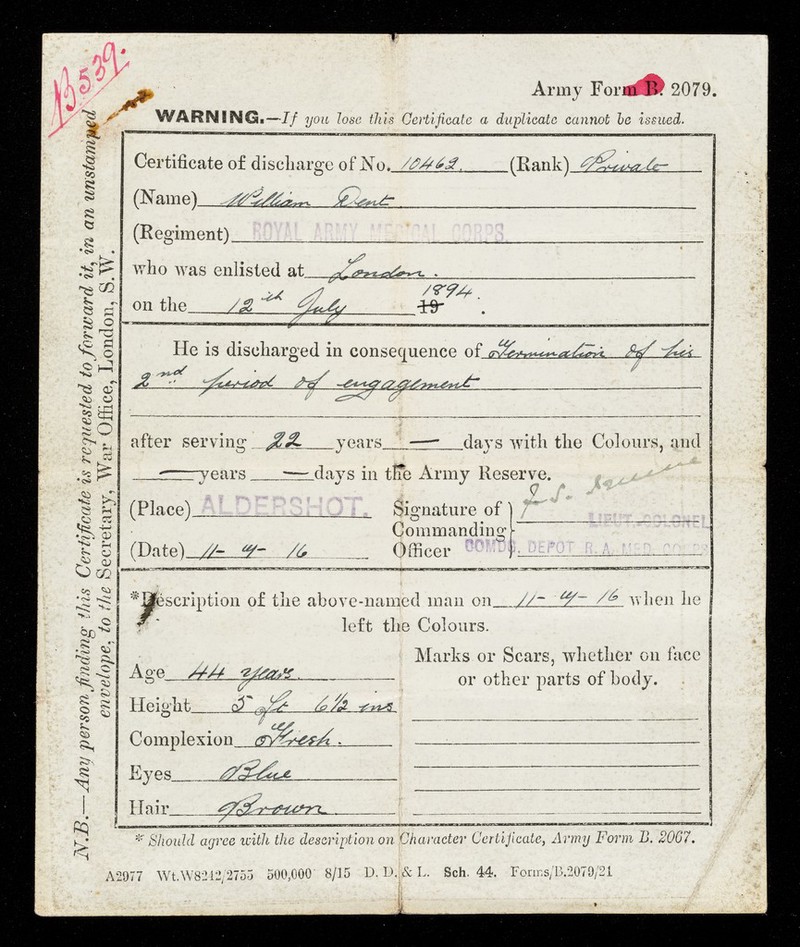 13539.
Army Form B. 2079.
WARNING.—If you lose this Certificate a duplicate cannot be issued.
N.B.—Any person finding this Certificate is requested to forward it, in an unstamped
envelope, to the Secretary, War Office, London, S.W.
Certificate of discharge of No. 10462. (Rank) Private
(Name) William Dent
(Regiment) ROYAL ARMY MEDICAL CORPS.
who was enlisted at London.
on the 12th July 19 1894.
He is discharged in consequence of Termination Of his
2nd period of engagement
after serving 22 years — days with the Colours, and
— years — days in the Army Reserve.
(Place) ALDERSHOT. Signature of
Commanding
Officer
LIEUT.-COLONEL
COMDG. DEPOT R.A. MED. CORPS
(Date) 11- - 16
*Description of the above-named man on 11- - 16 when he
left the Colours.
Age 44 years.
Marks or Scars, whether on face
or other parts of body.
Height 5 ft 6½ ins
Complexion Fresh.
Eyes Blue
Hair Brown.
* Should agree with the description on Character Certificate, Army Form B. 2067.
A2977 Wt.W8212/2755 500,000 8/15 D. D. & L. Sch. 44. Forms/B.2079/21